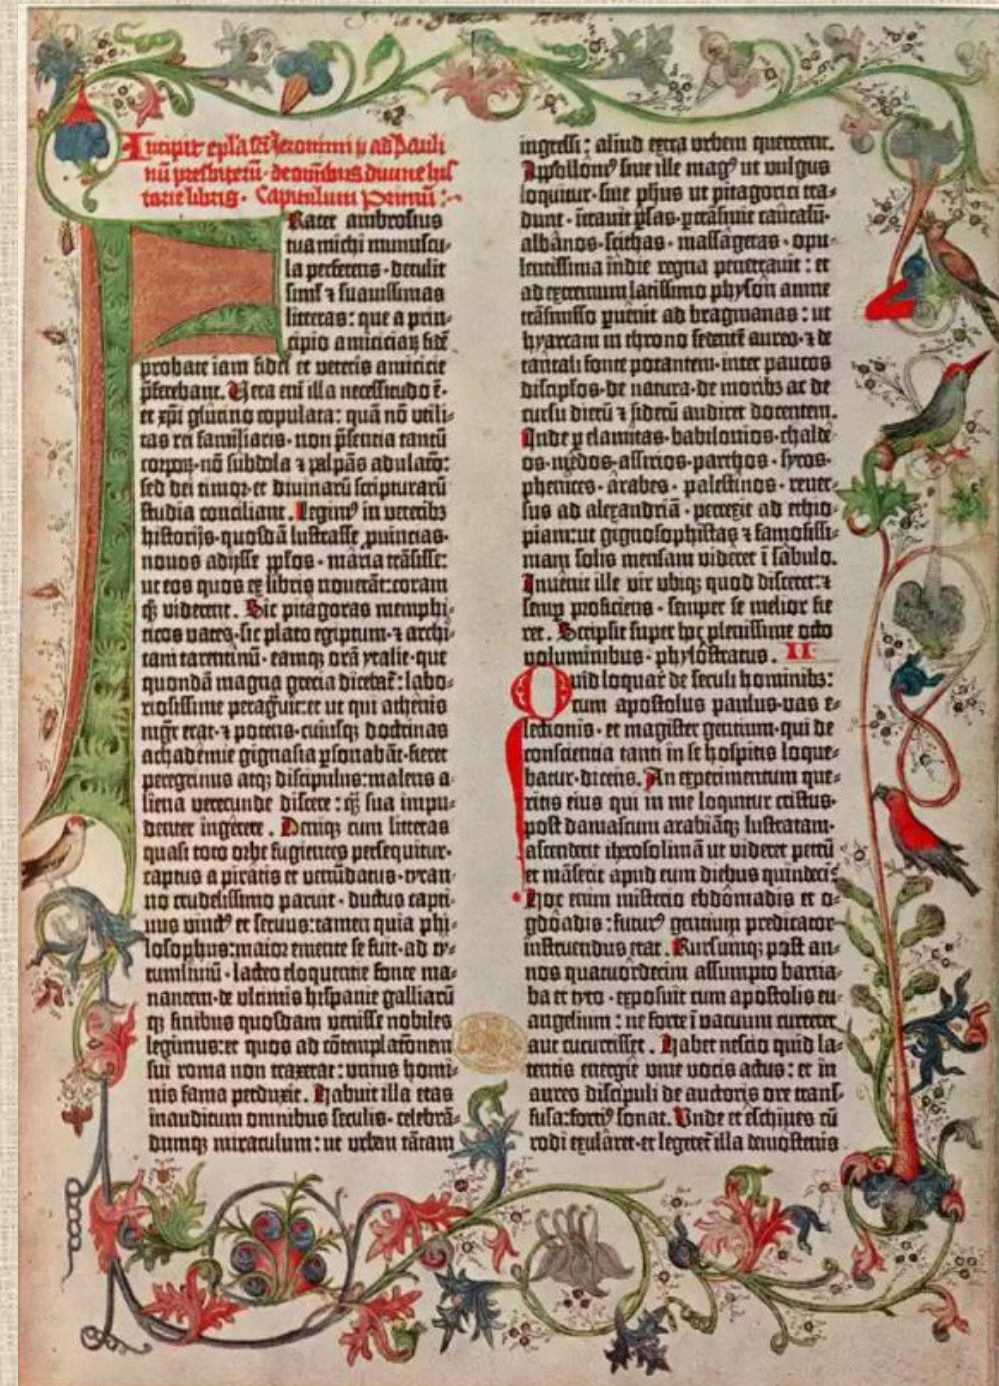 Incipit epła sctī Jeronimi p̄ ad Pauli
nū presbiterū · de oīnibus diuine his
torie libris · Capitulum primū :·
Frater ambrosius
tua michi munuscu-
la perferens · detulit
siml̄ ⁊ suauissimas
litteras : que a prin-
cipio amiciciaꝝ fidē
probate iam fidei et veteris amicicie
p̄ferebant. Uera eni̅ illa necessitudo ē·
et xp̄i glutino copulata : quā nō vtili-
tas rei familiaris · non p̄sencia tantū
corpoꝝ · nō subdola ⁊ palpās adulacō:
sed dei timor · et diuinarū scripturarū
studia conciliant. Legimꝰ in veteribꝫ
historijs · quosdā lustrasse ꝓuincias·
nouos adijsse pp̄los · maria trāsisse:
ut eos quos ex libris nouerāt : coram
qꝫ viderent. Sic pitagoras memphi-
ticos vates · sic plato egiptum · ⁊ archi-
tam tarentinū · eamqꝫ orā ytalie · que
quondā magna grecia dicebat̄ : labo-
riosissime peragͣuit : et ut qui athenis
mgr̄ erat · ⁊ potens · cuiusqꝫ doctrinas
achademie gignasia ꝑsonabāt · fieret
peregrinus atqꝫ discipulus : malens a-
liena verecunde discere : qͣꝫ sua impu-
denter ingerere. Deniqꝫ cum litteras
quasi toto orbe fugientes persequitur·
captus a piratis et venūdatus · tyran-
no crudelissimo paruit · ductus capti-
uus vinctꝰ et seruus : tamen quia phi-
losophus : maior emente se fuit · ad ty-
tumliuiū · lacteo eloquentie fonte ma-
nantem · de vltimis hispanie galliarū
qꝫ finibus quosdam venisse nobiles
legimus : et quos ad cōtemplatōnem
sui roma non traxerat : vnius homi-
nis fama perduxit. Habuit illa etas
inauditum omnibus seculis · celebrā-
dumqꝫ miraculum : ut vrbem tātam
ingressi : aliud extra vrbem quererent.
Appollonꝰ siue ille magꝰ ut vulgus
loquitur · siue phūs ut pitagorici tra-
dunt · ītrauit ꝑsas · ꝑtrāsiuit caucasū·
albānos · scithas · massagetas · opu-
lentissima indie regna penetrauit : et
ad extremum latissimo physon amne
trāsmisso ꝑuēnit ad bragmanas : ut
hyarcam in throno sedentē aureo · ⁊ de
tantali fonte potantem · inter paucos
discipl̄os · de natura · de moribꝫ ac de
cursu dierū ⁊ siderū audiret docentem.
Inde ꝑ elamitas · babilonios · chalde-
os · medos · assirios · parthos · syros·
phenices · arabes · palestinos · reuer-
sus ad alexandriā · perrexit ad ethio-
piam : ut gignosophistas ⁊ famosissi-
mam solis mensam videret ī sabulo.
Inuēnit ille vir vbiqꝫ quod disceret : ⁊
semꝑ proficiens · semper se melior fie
ret. Scripsit super hoc plenissime octo
voluminibus · phylostratus. II
Quid loquar de seculi hominibꝫ:
cum apostolus paulus · vas e-
lectionis · et magister gentium · qui de
conscientia tanti in se hospitis loque-
batur · dicens. An experimentum que-
ritis eius qui in me loquitur cristus·
post damascum arabiāqꝫ lustratam·
ascenderit iherosolimā ut videret petrū
et māserit apud eum diebus quindecī:
Hoc enim misterio ebdōmadis et o-
gdōadis : futurꝰ gentium predicator
instruendus erat. Rursumqꝫ post an-
nos quatuōrdecim assumpto barna-
ba et tyto · exposuit cum apostolis eu-
angelium : ne forte ī vacuum curreret
aut cucurrisset. Habet nescio quid la-
tentis energie viue vocis actus : et in
aures discipuli de auctoris ore trans-
fusa : fortiꝰ sonat. Unde et eschines cū
rodi exularet · et legeret̄ illa demostenis